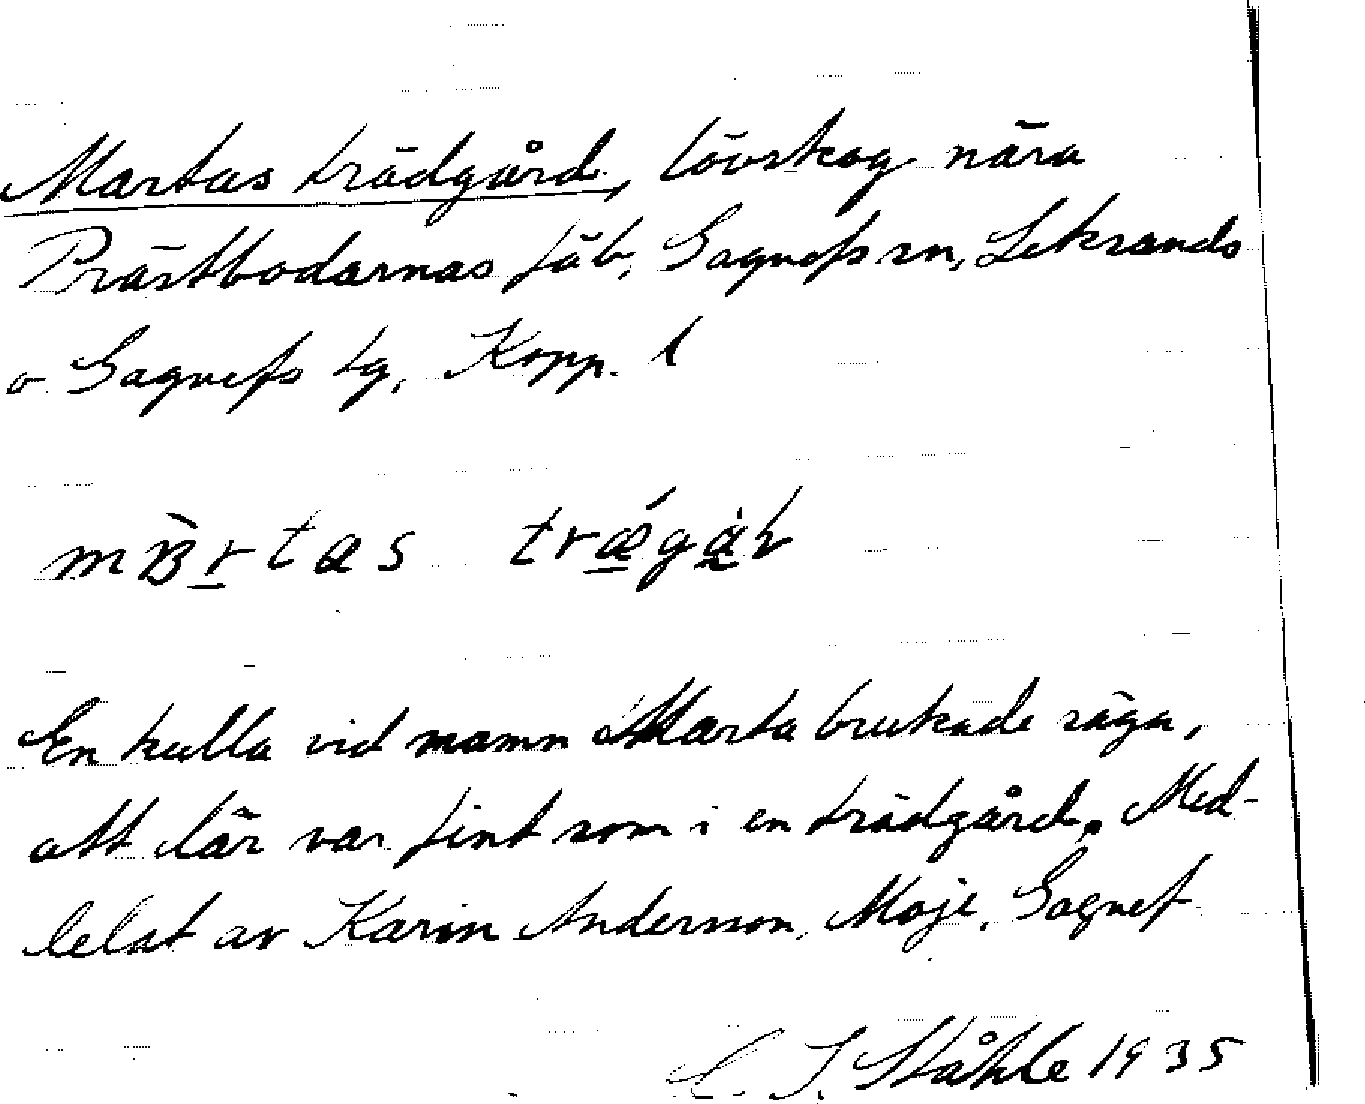 Martas trädgård, lövskog nära
Prästbodarnas fäb, Gagnefs sn, Leksands
o Gagnefs tg, Kopp. l
En kulla vid namn Marta brukade säga,
att där var fint som i en trädgård. Med-
delat av Karin Andersson, Moje, Gagnef
C. I. Ståhle 1935